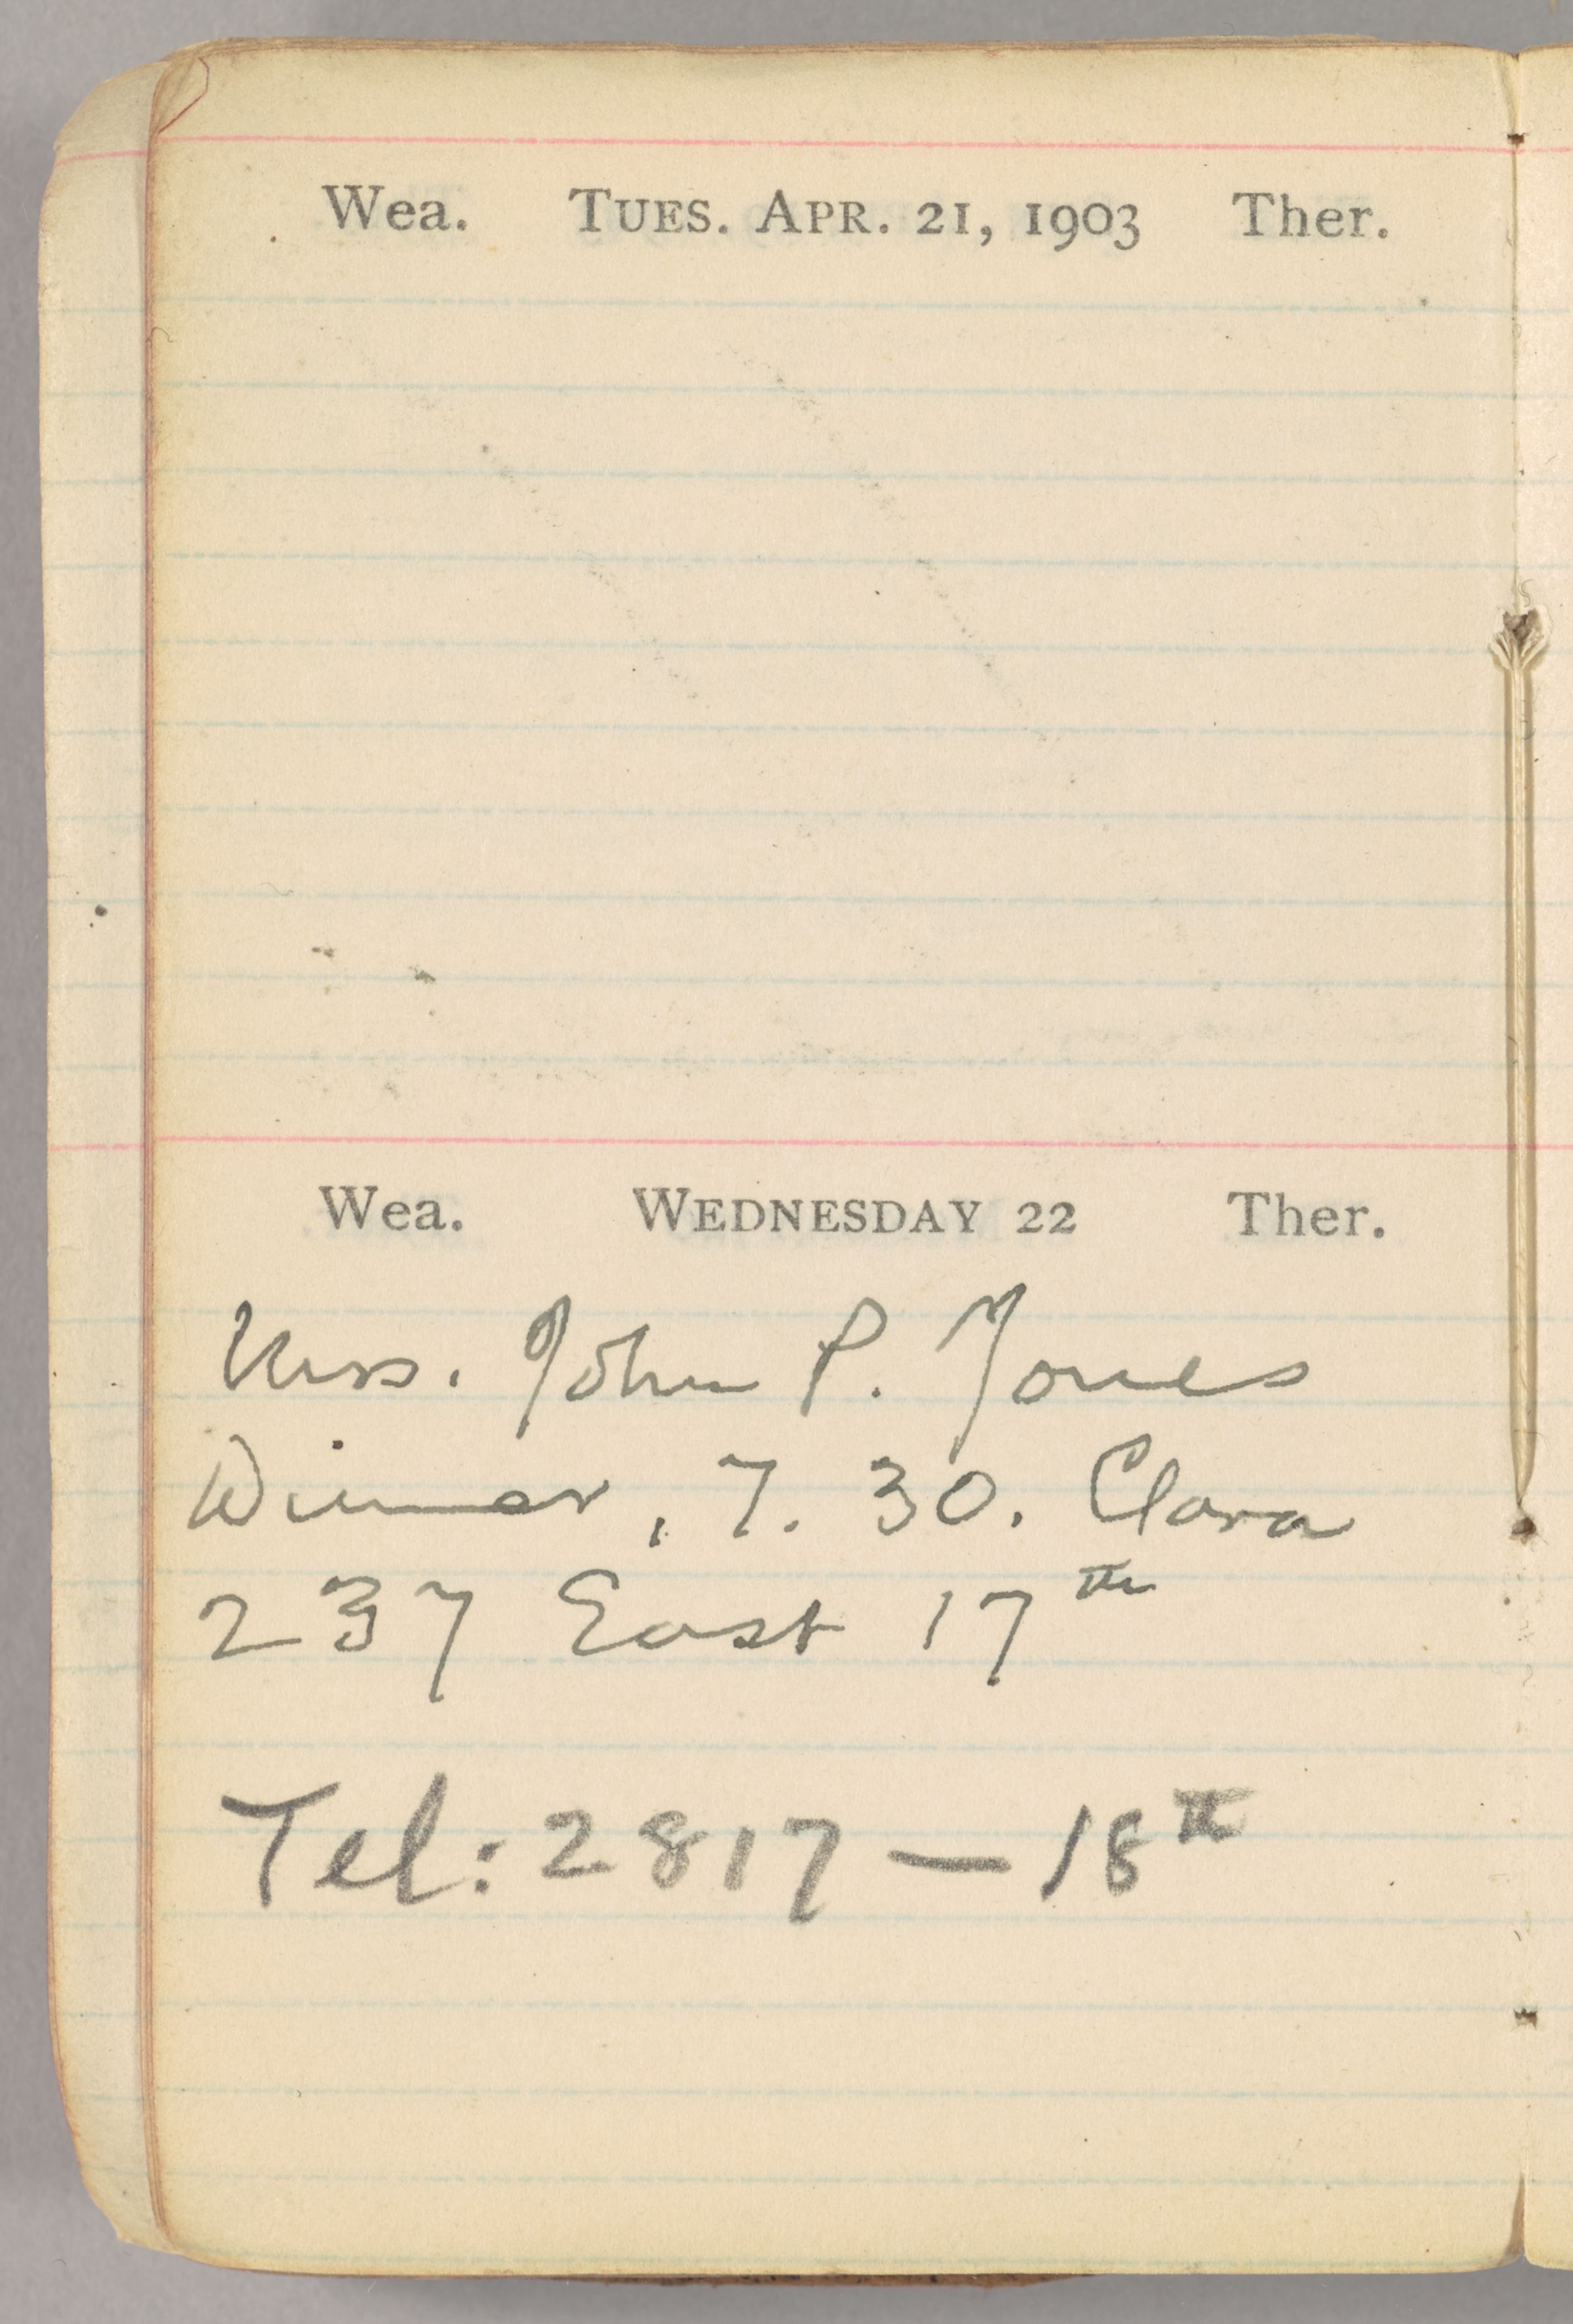 Wea. TUES. APR. 21, 1903 Ther.
Wea. WEDNESDAY 22 Ther.
Mrs. John P. Jones
Dinner, 7. 30. Clara
237 East 17th
Tel: 2817 — 18th